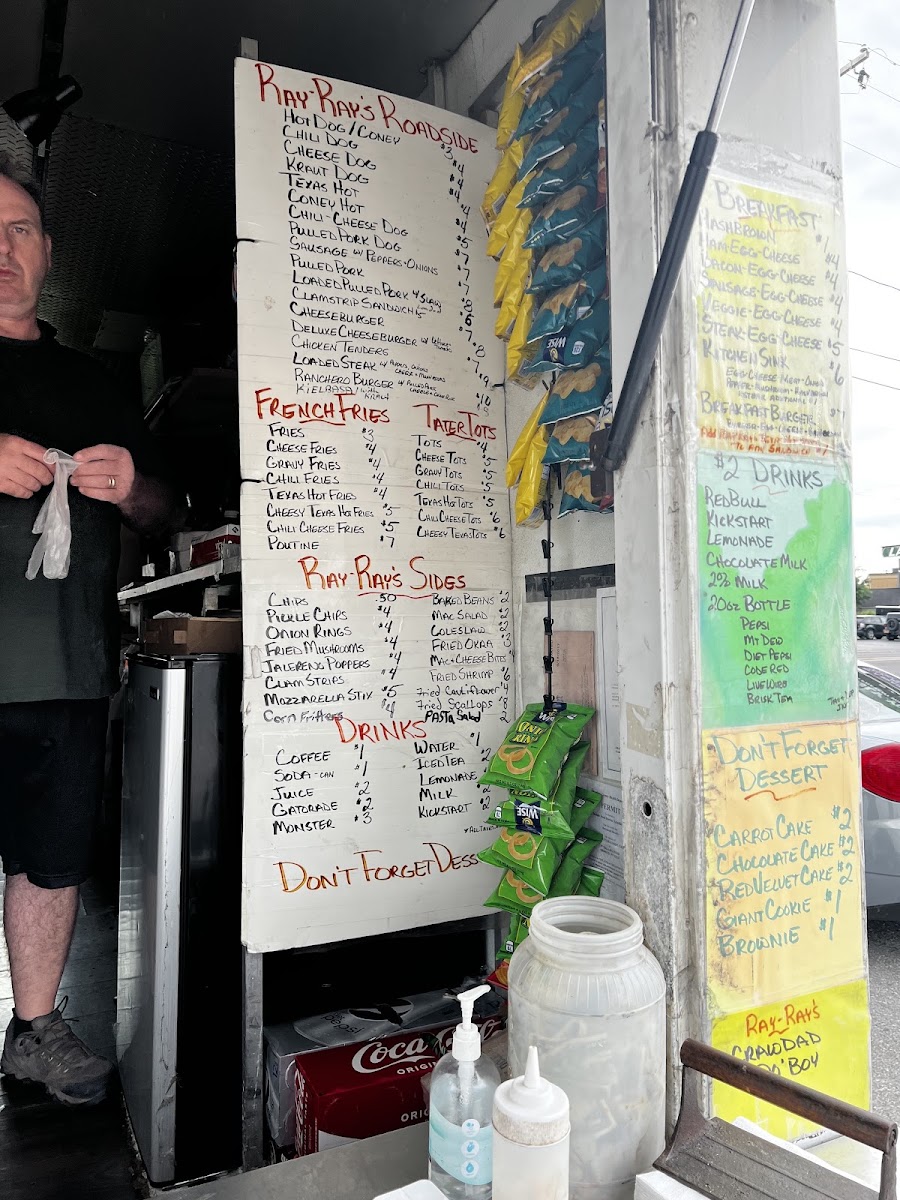 RAY-RAY'S ROADSIDE
HOT DOG/CONEY $3
CHILI DOG $4
CHEESE DOG $4
KRAUT DOG $4
TEXAS HOT $4
CONEY HOT $4
CHILI-CHEESE DOG $5
PULLED PORK DOG $7
SAUSAGE W/ PEPPERS+ONIONS $7
PULLED PORK $7
LOADED PULLED PORK W/ SLAW $8
CLAMSTRIP SANDWICH $6
CHEESEBURGER $7
DELUXE CHEESEBURGER $8
CHICKEN TENDERS $7
LOADED STEAK $9
RANCHERO BURGER W/ PULLED PORK $10
KIELBASA/ with KRAUT
FRENCH FRIES
FRIES $3
CHEESE FRIES $4
GRAVY FRIES $4
CHILI FRIES $4
TEXAS HOT FRIES $4
CHEESY TEXAS HOT FRIES $5
CHILI CHEESE FRIES $5
POUTINE $7
TATER TOTS
TOTS $4
CHEESE TOTS $5
GRAVY TOTS $5
CHILI TOTS $5
TEXAS HOT TOTS $5
CHILI CHEESE TOTS $6
CHEESY TEXAS TOTS $6
RAY-RAY'S SIDES
CHIPS .50
PICKLE CHIPS $4
ONION RINGS $4
FRIED MUSHROOMS $4
JALEPENO POPPERS $4
CLAM STRIPS $4
MOZZARELLA STIX $5
Corn Fritters $4
BAKED BEANS $2
MAC SALAD $2
COLESLAW $2
FRIED OKRA $3
MAC+CHEESE BITES $4
FRIED SHRIMP $6
Fried Cauliflower $4
Fried Scallops $8
PASTA Salad 2
DRINKS
COFFEE $1
SODA-CAN $1
JUICE $2
GATORADE $2
MONSTER $3
WATER $1
ICED TEA $2
LEMONADE $2
MILK $2
KICKSTART $2
DON'T FORGET DESS
BREAKFAST
HASHBROWN $1
HAM-EGG-CHEESE $4
BACON-EGG-CHEESE $4
SAUSAGE-EGG-CHEESE $4
VEGGIE-EGG-CHEESE $4
STEAK-EGG-CHEESE $5
KITCHEN SINK $6
BREAKFAST BURGER $7
$2 DRINKS
RED BULL
KICKSTART
LEMONADE
CHOCOLATE MILK
2% MILK
20oz BOTTLE
PEPSI
MT DEW
DIET PEPSI
CODE RED
LIVE WIRE
BRISK TEA
DON'T FORGET
DESSERT
CARROT CAKE $2
CHOCOLATE CAKE $2
RED VELVET CAKE $2
GIANT COOKIE $1
BROWNIE $1
RAY-RAY'S
CRAWDAD
PO' BOY
WISE
WISE
WISE
Coca-Cola